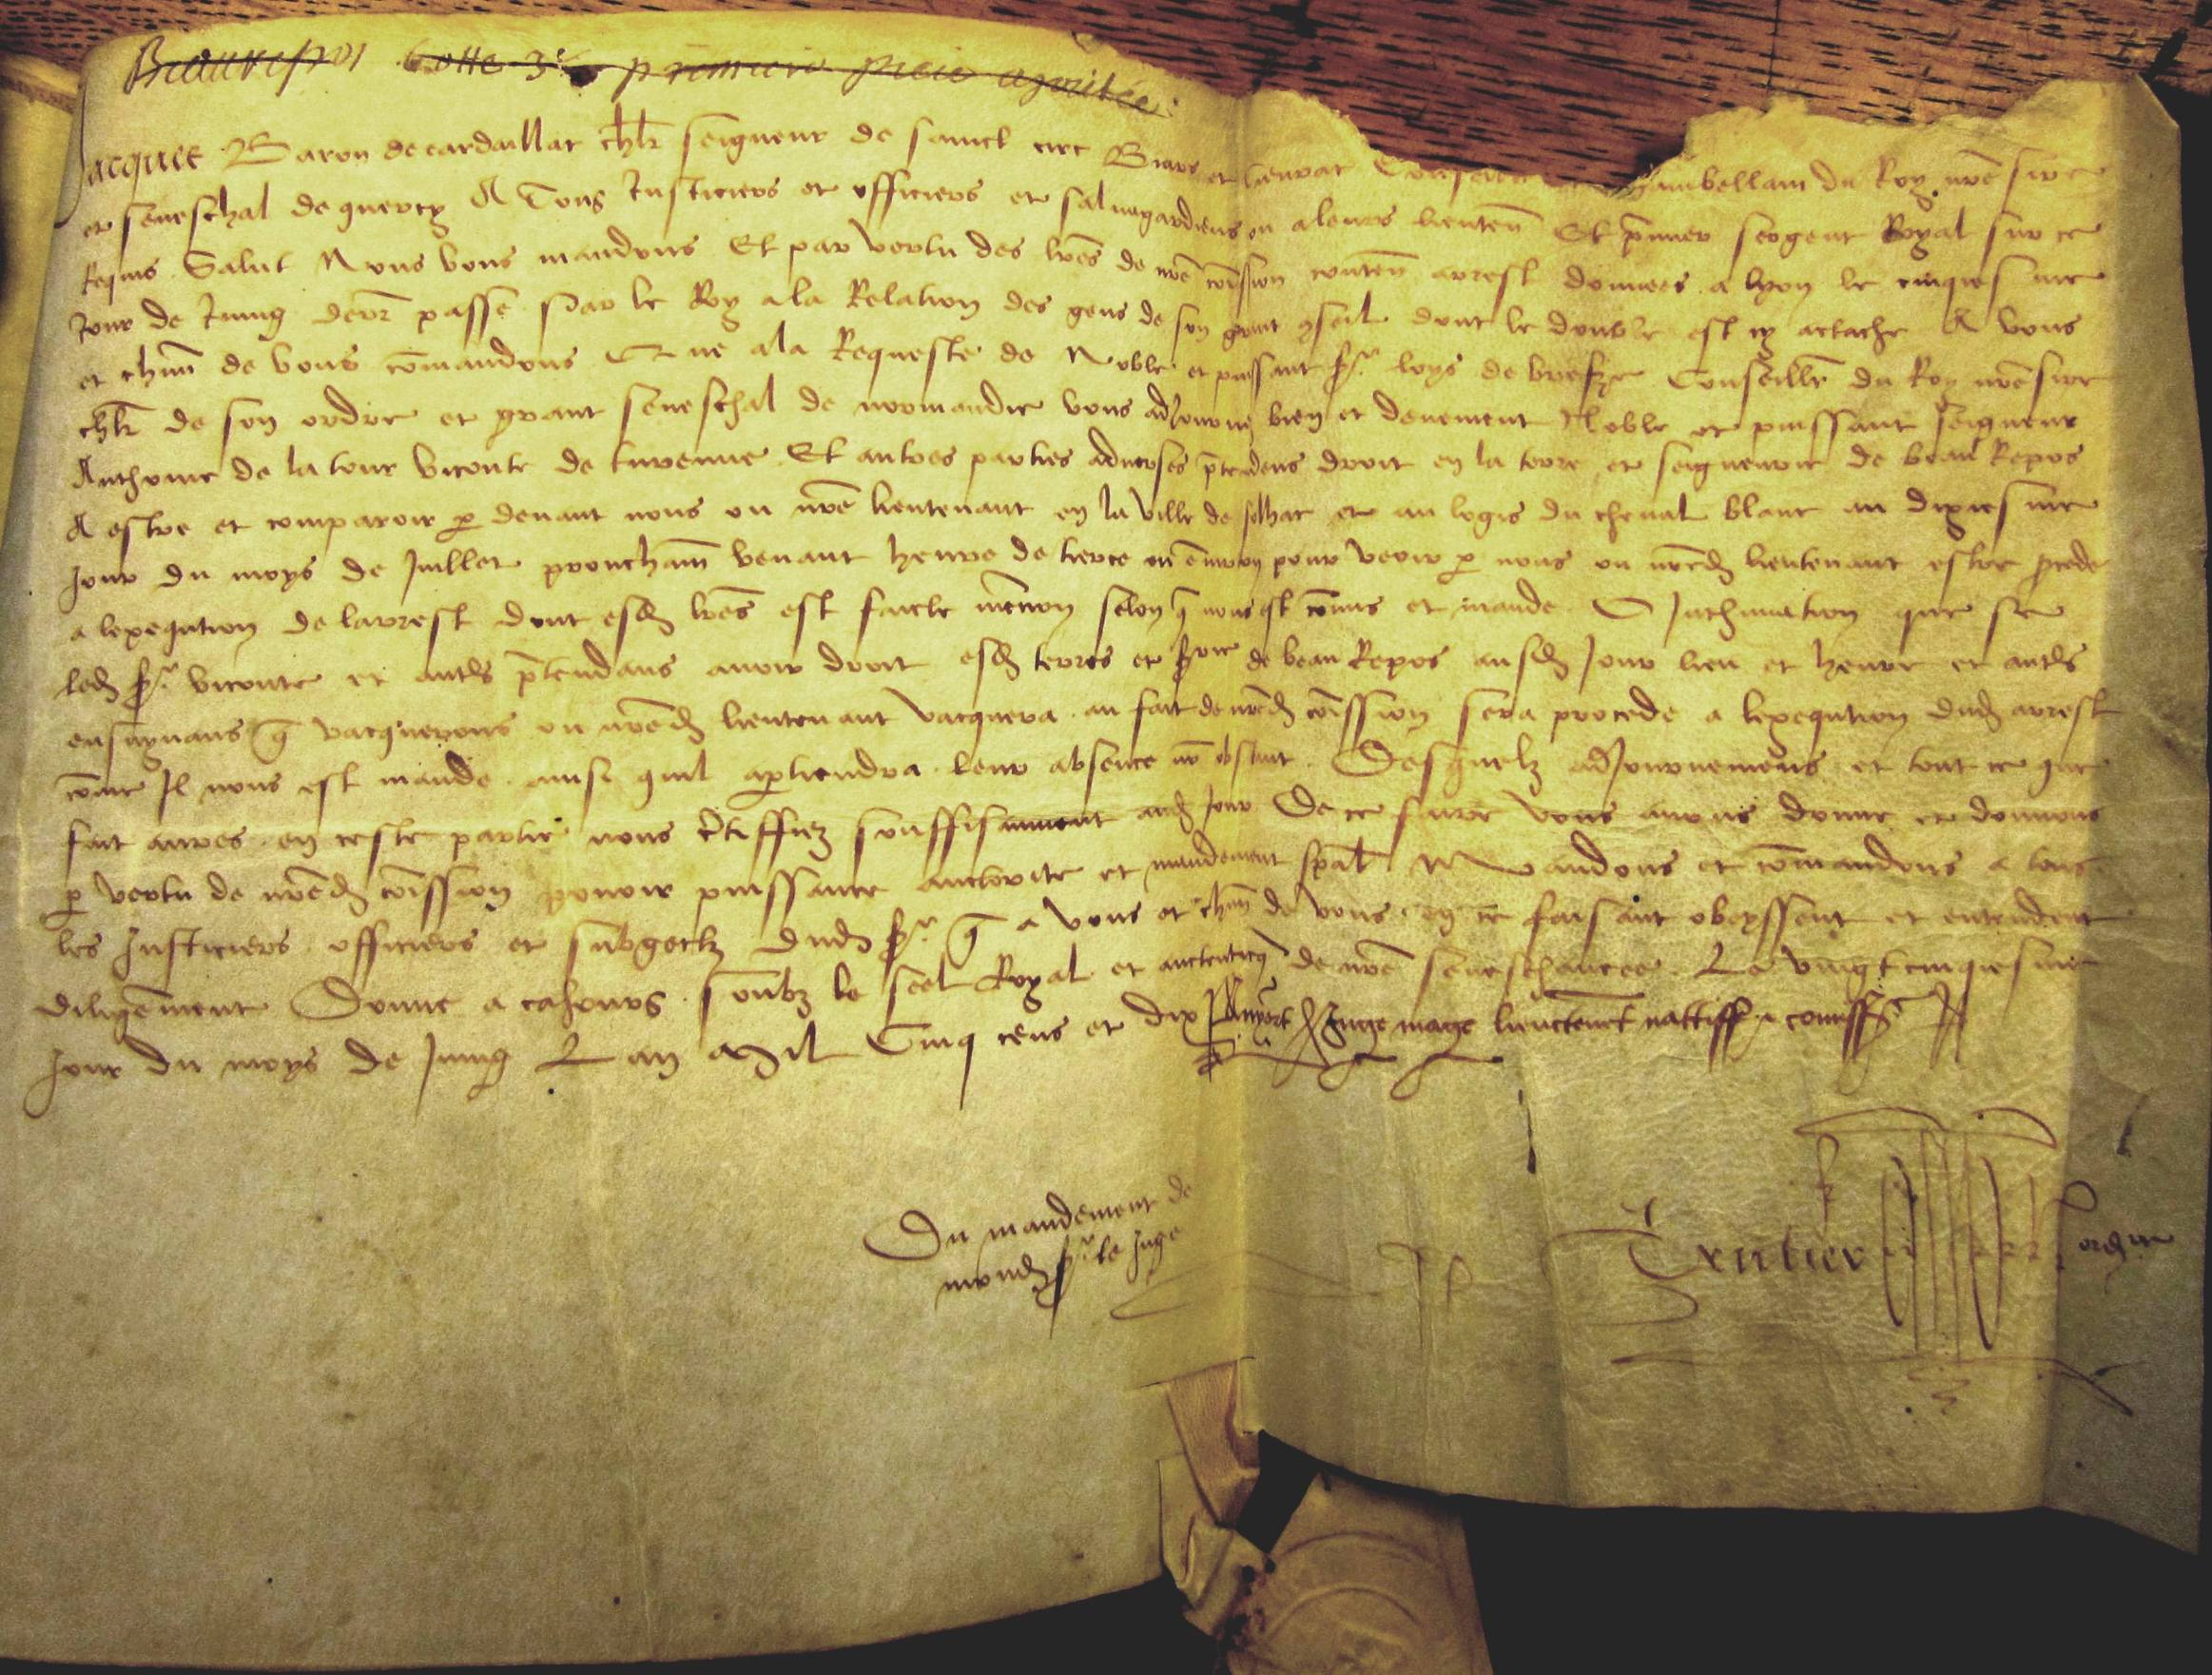 Beaurepos Cotte 3e premiere piece ajoutée
Jacques Baron de cardaillat chlr seigneur de sainct circ Biars et lieurat Conseiller ambellam du Roy nre sire
et seneschal de quercy A Tous Justiciers et officiers et salvegardiens ou a leurs lieuten Et pmier sergent Royal sur ce
Requis Salut Nous vous mandons Et par vertu des lres de nre comission conten arrest donnees a lyon le cinquiesme
Jour de Juing derr passe Par le Roy a la Relation des gens de son grant conseil dont le double est cy actache A vous
et chun de vous comandons Que a la Requeste de Noble et puissant sr loys de bresze Conseillr du Roy nre sire
chlr de son ordre et grant seneschal de normandie vous adjournez bien et deuement Noble et puissant seigneur
Anthoine de la tour viconte de turenne Et autres parties adverses ptendens droit en la terre et seigneurie de beau Repos
A estre et comparoir p devant nous ou nre lieutenant en la ville de selhac et au logis du cheval blanc au dixiesme
Jour du moys de Juillet prouchain venant heure de tierce ou environ pour veoir p nous ou nred lieutenant estre procede
a lexeqution de larrest dont esd lres est faicte mencion selon q nous est comis et mande O Inthimation que se
led sr viconte et autrs ptendans avoir droit esd terres et srie de beau Repos ausd Jour lieu et heure et autrs
ensuyvans q vacquerons ou nred lieutenant vacquera au fait de nred comission sera procede a lexeqution dud arrest
come Il nous est mande ainsi quil apartiendra leur absence no obstant Desquelz adjournemens et tout ce que
fait aures en ceste partie nous certiffiez souffisamment aud Jour De ce faire vous avons donne et donnons
p vertu de nred comission povoir puissance auctorite et mandement spal Mandons et comandons a tous
les Justiciers officiers et subgectz dud sr q a vous et chun de vous en ce faisant obeyssent et entendent
diligemment Donne a cahours soubz le seel Royal et auctenticq de nre seneschaucee Le vingt cinquiesme
Jour du moys de Juing Lan Mil Cinq cens et dix Juge mage lieuctenent
Du mandement de
mond sr le Juge